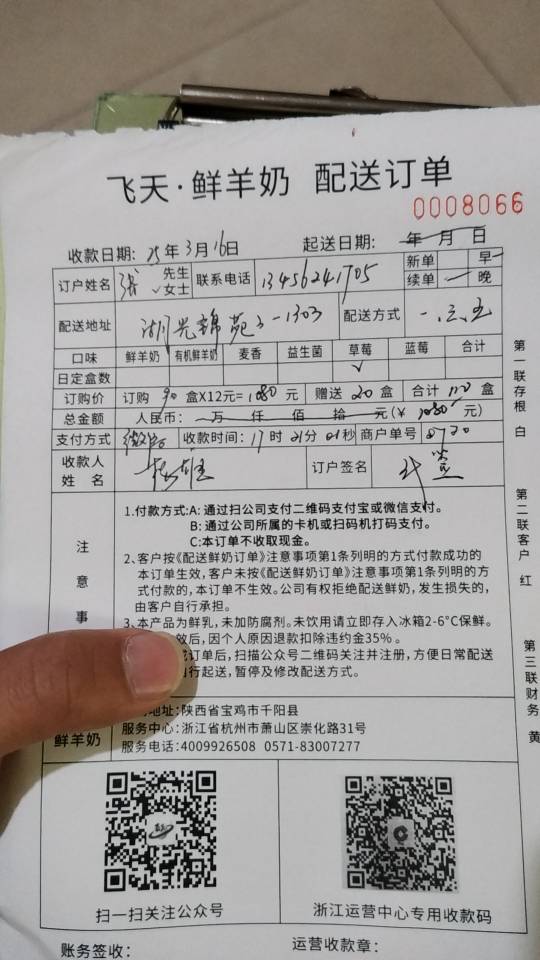 飞天·鲜羊奶 配送订单
0008066
收款日期: 25年3月16日 起送日期: 年 月 日
订户姓名 张 先生 女士 联系电话 13456241705 新单 早
续单 晚
配送地址 湖光锦苑2-1303 配送方式 一.三.五
口味 鲜羊奶 有机鲜羊奶 麦香 益生菌 草莓 蓝莓 合计
日定盒数 ✓
订购价 订购 90 盒X12元=1080元 赠送 20 盒 合计 110 盒
总金额 人民币: 万 仟 佰 拾 元(¥ 1080 元)
支付方式 微信 收款时间: 17时21分01秒 商户单号 0720
收款人
姓 名
订户签名
注
意
事
1.付款方式:A: 通过扫公司支付二维码支付宝或微信支付。
B: 通过公司所属的卡机或扫码机打码支付。
C:本订单不收取现金。
2、客户按《配送鲜奶订单》注意事项第1条列明的方式付款成功的
本订单生效，客户未按《配送鲜奶订单》注意事项第1条列明的方
式付款的，本订单不生效。公司有权拒绝配送鲜奶，发生损失的，
由客户自行承担。
3、本产品为鲜乳，未加防腐剂。未饮用请立即存入冰箱2-6°C保鲜。
效后，因个人原因退款扣除违约金35%。
订单后，扫描公众号二维码关注并注册，方便日常配送
行起送，暂停及修改配送方式。
地址:陕西省宝鸡市千阳县
服务中心:浙江省杭州市萧山区崇化路31号
鲜羊奶
服务电话:4009926508 0571-83007277
扫一扫关注公众号
浙江运营中心专用收款码
账务签收:
运营收款章:
第一联存根 白
第二联客户 红
第三联财务 黄